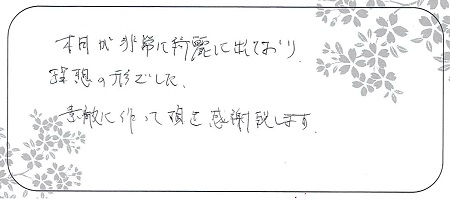 木目が非常に綺麗に出ており、
理想の形でした、
素敵に作って頂き感謝致します。